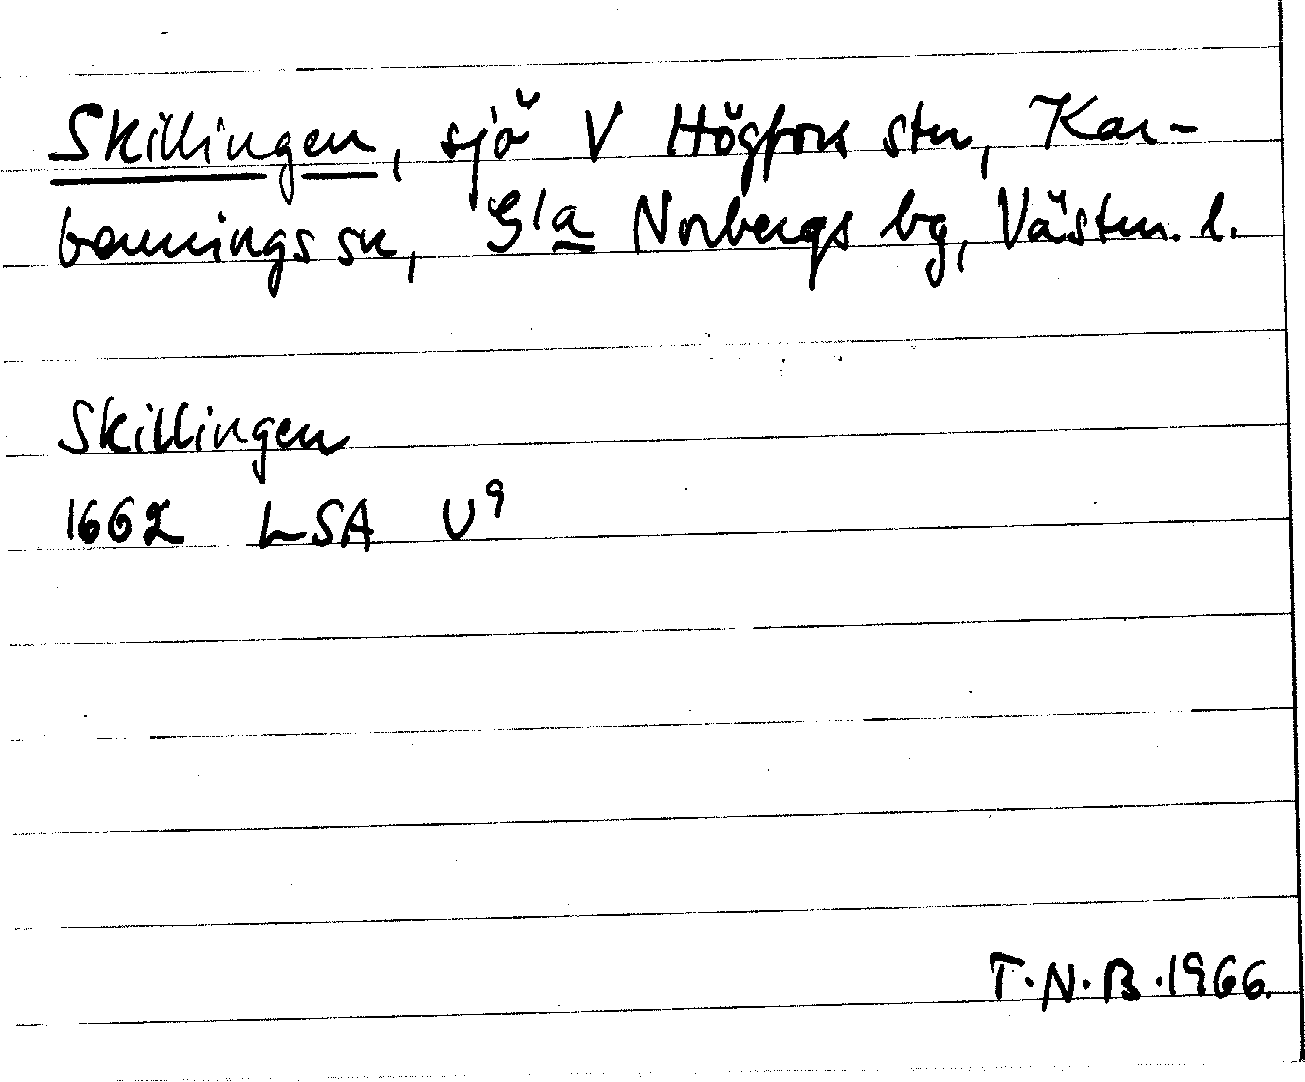 Skillingen, sjö V Högfors stn, Kar-
bennings sn, G:la Norbergs bg, Västm. l.
Skillingen
1662 LSA U9
T.N.B.1966.